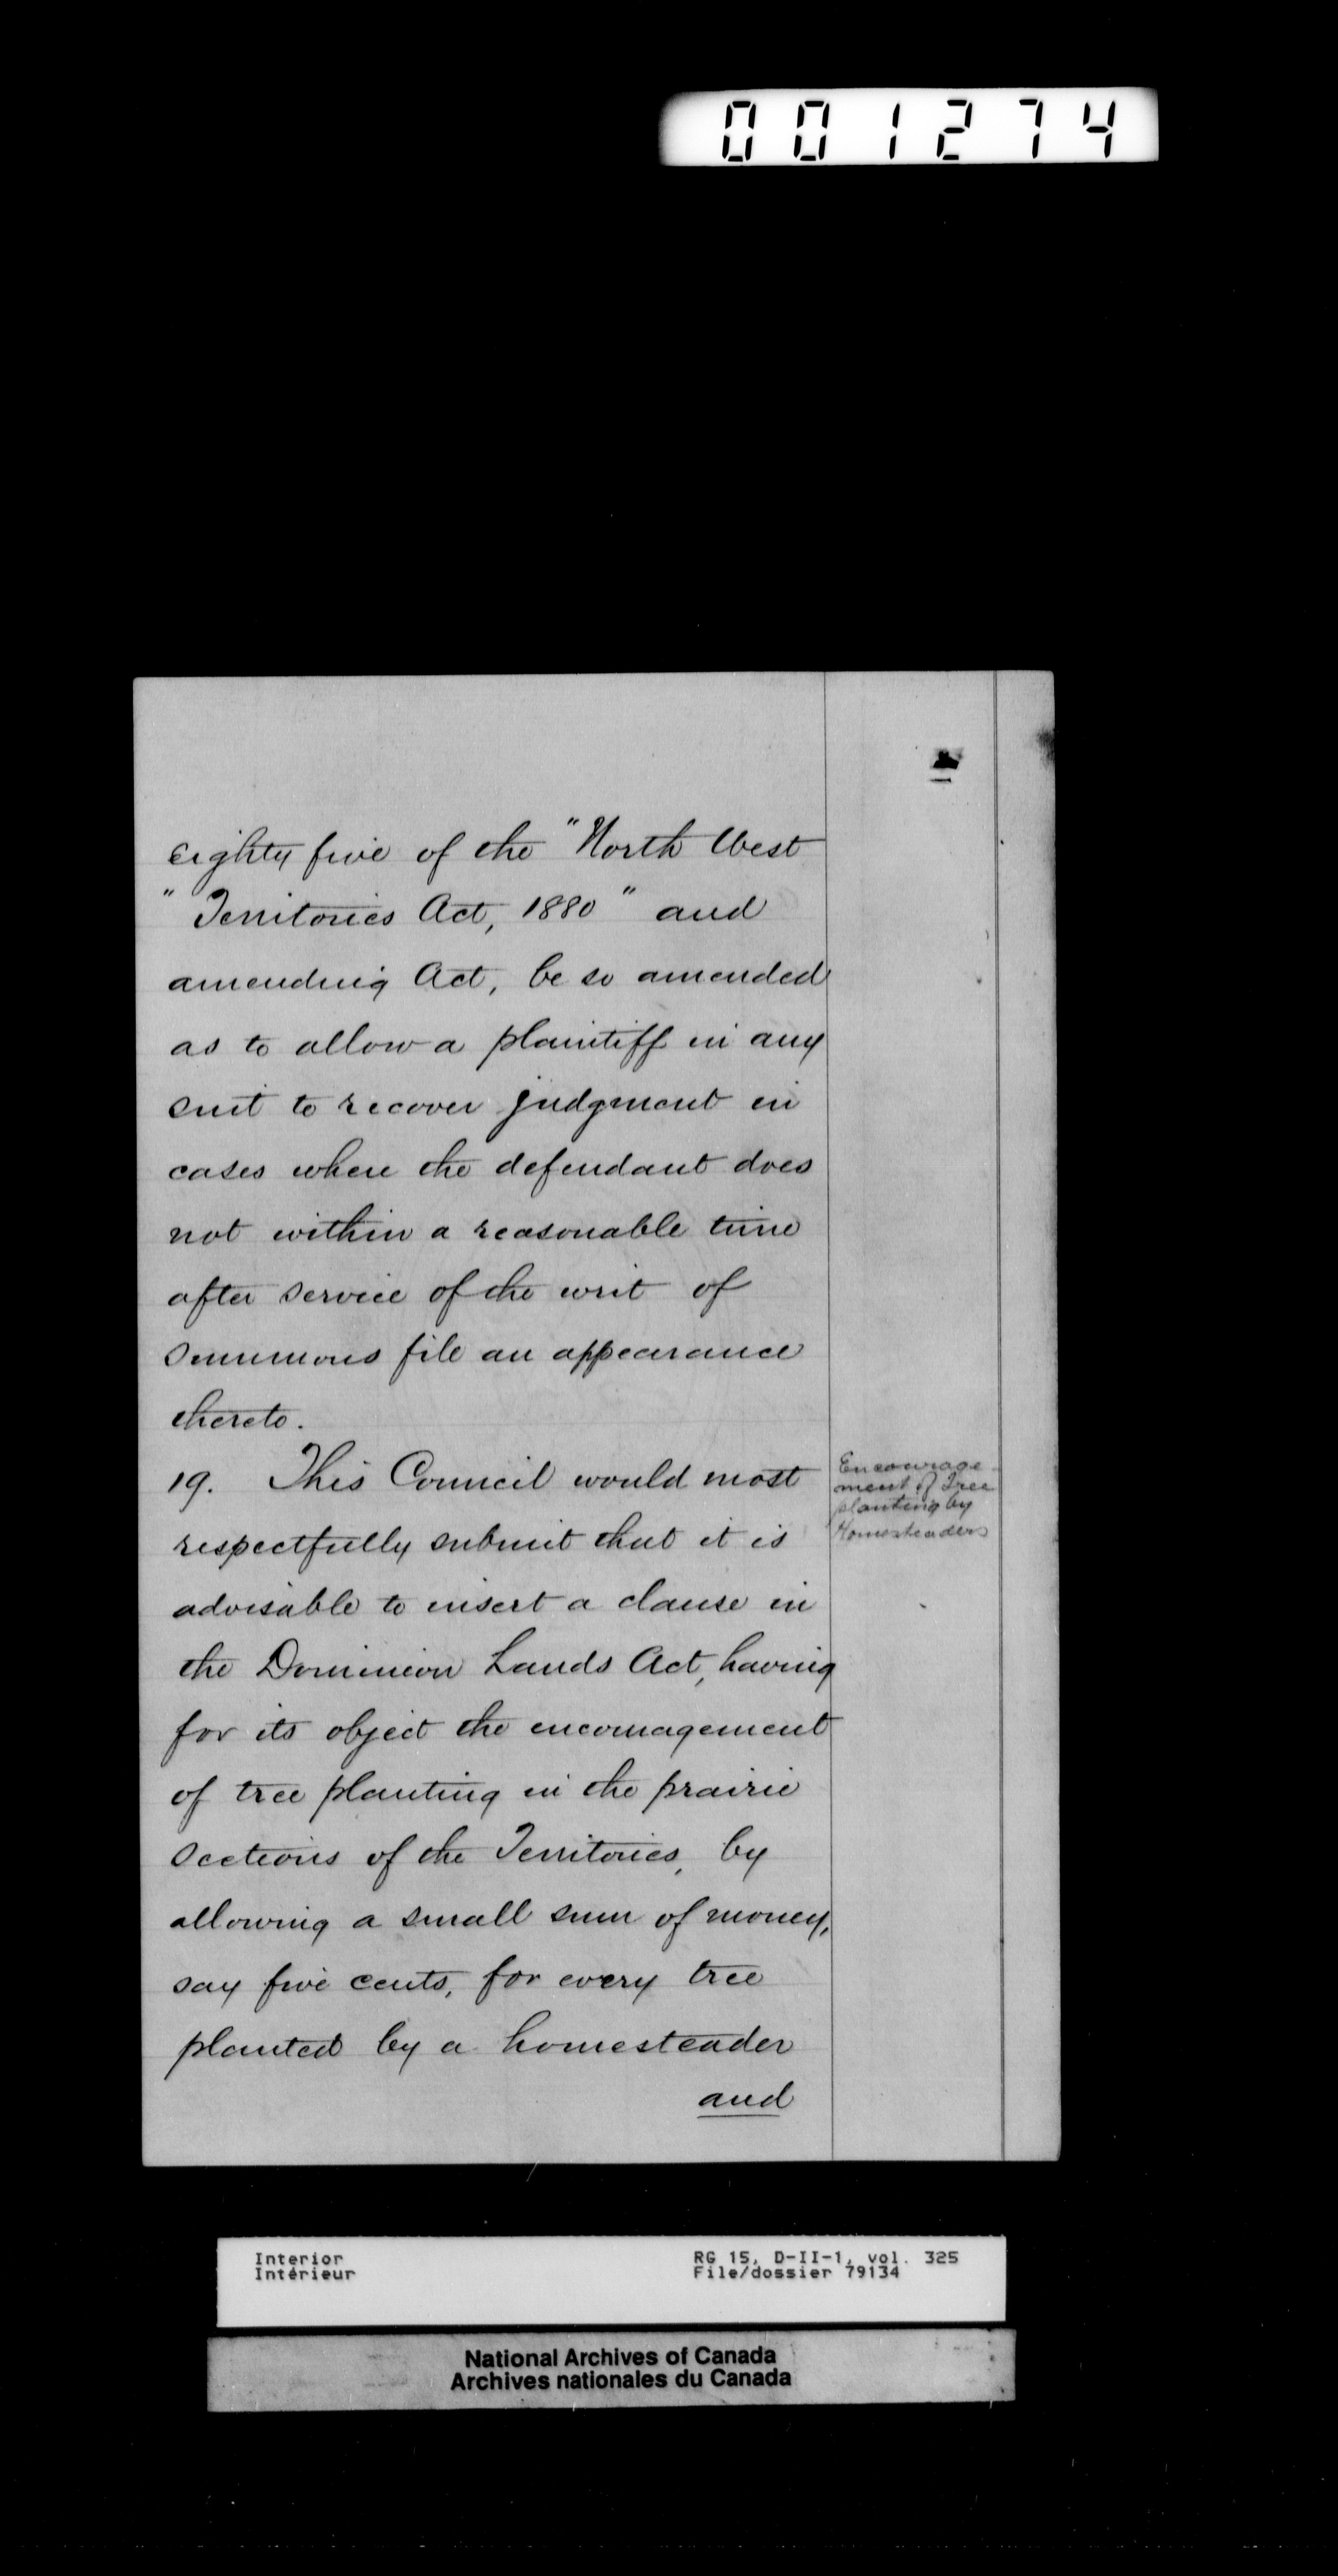 001274
eighty five of the "North West
"Territories Act, 1880" and
amending Act, be so amended
as to allow a plaintiff in any
suit to recover judgment in
cases where the defendant does
not within a reasonable time
after service of the writ of
summons file an appearance
thereto.
19. This Council would most
respectfully submit that it is
advisable to insert a clause in
the Dominion Lands Act, having
for its object the encouragement
of tree planting in the prairie
sections of the Territories, by
allowing a small sum of money,
say five cents, for every tree
planted by a homesteader
and
Encourage-
ment of Tree
planting by
Homesteaders
Interior
Intérieur
RG 15, D-II-1, vol. 325
File/dossier 79134
National Archives of Canada
Archives nationales du Canada